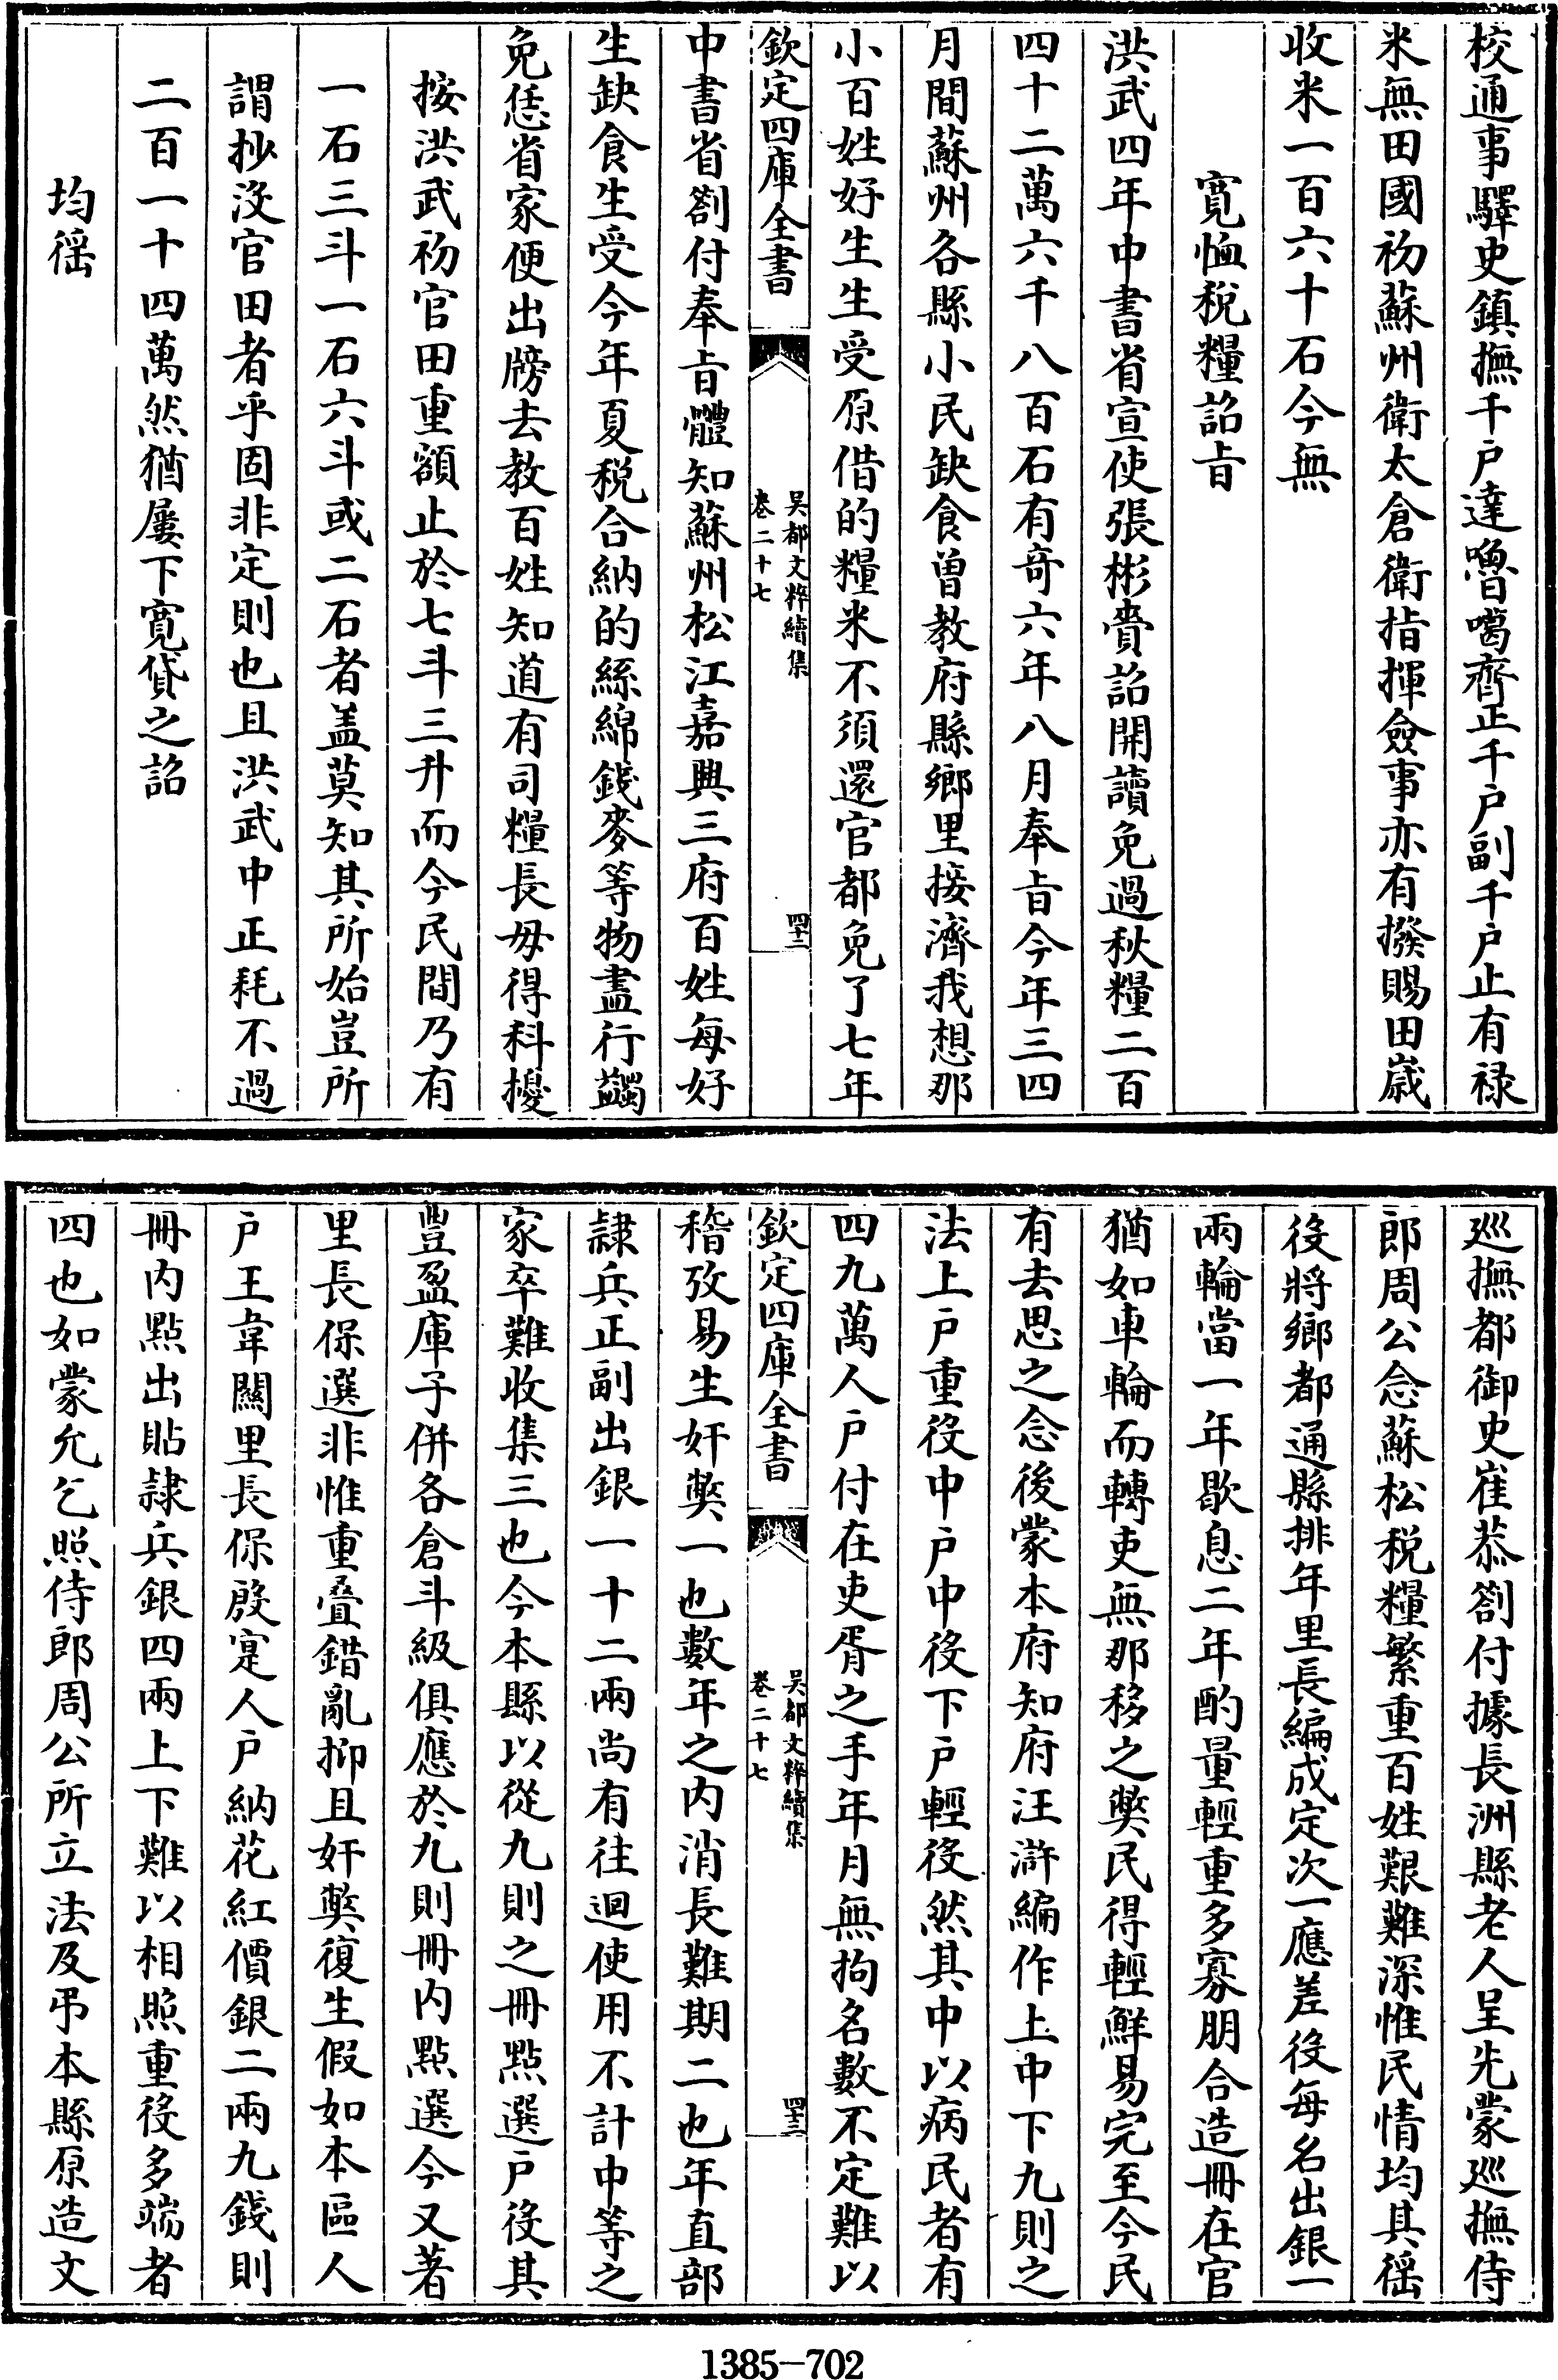 校通事驛吏鎮撫千户達嚕噶齊正千户副千户止有禄
米無田國初蘇州衛太倉衛指揮僉事亦有撥賜田嵗
收米一百六十石今無
寛恤税糧詔㫖
洪武四年中書省宣使張彬賫詔開讀免過秋糧二百
四十二萬六千八百石有竒六年八月奉㫖今年三四
月間蘇州各縣小民缺食曾教府縣鄉里接濟我想那
小百姓好生生受原借的糧米不須還官都免了七年
欽定四庫全書
吳都文粹續集
卷二十七
四十二
中書省劄付奉㫖體知蘇州松江嘉興三府百姓每好
生缺食生受今年夏税合納的絲綿錢麥等物盡行蠲
免恁省家便出牓去教百姓知道有司糧長毋得科擾
按洪武初官田重額止於七斗三升而今民間乃有
一石三斗一石六斗或二石者盖莫知其所始豈所
謂抄沒官田者乎固非定則也且洪武中正耗不過
二百一十四萬然猶屢下寛貸之詔
均徭
巡撫都御史崔恭劄付據長洲縣老人呈先蒙巡撫侍
郎周公念蘇松税糧繁重百姓艱難深惟民情均其徭
役將鄉都通縣排年里長編成定次一應差役每名出銀一
兩輪當一年歇息二年酌量輕重多寡朋合造冊在官
猶如車輪而轉吏無那移之獘民得輕鮮易完至今民
有去思之念後蒙本府知府汪滸編作上中下九則之
法上户重役中户中役下户輕役然其中以病民者有
四九萬人户付在吏胥之手年月無拘名數不定難以
欽定四庫全書
吳都文粹續集
卷二十七
四十三
稽攷易生奸獘一也數年之内消長難期二也年直部
隷兵正副出銀一十二兩尚有往迴使用不計中等之
家卒難收集三也今本縣以從九則之冊點選户役其
豊盈庫子併各倉斗級俱應於九則冊内點選今又著
里長保選非惟重叠錯亂抑且奸獘復生假如本區人
户王韋關里長保殷寔人户納花紅價銀二兩九錢則
冊内點出貼隷兵銀四兩上下難以相照重役多端者
四也如蒙允乞照侍郎周公所立法及弔本縣原造文
1385-702